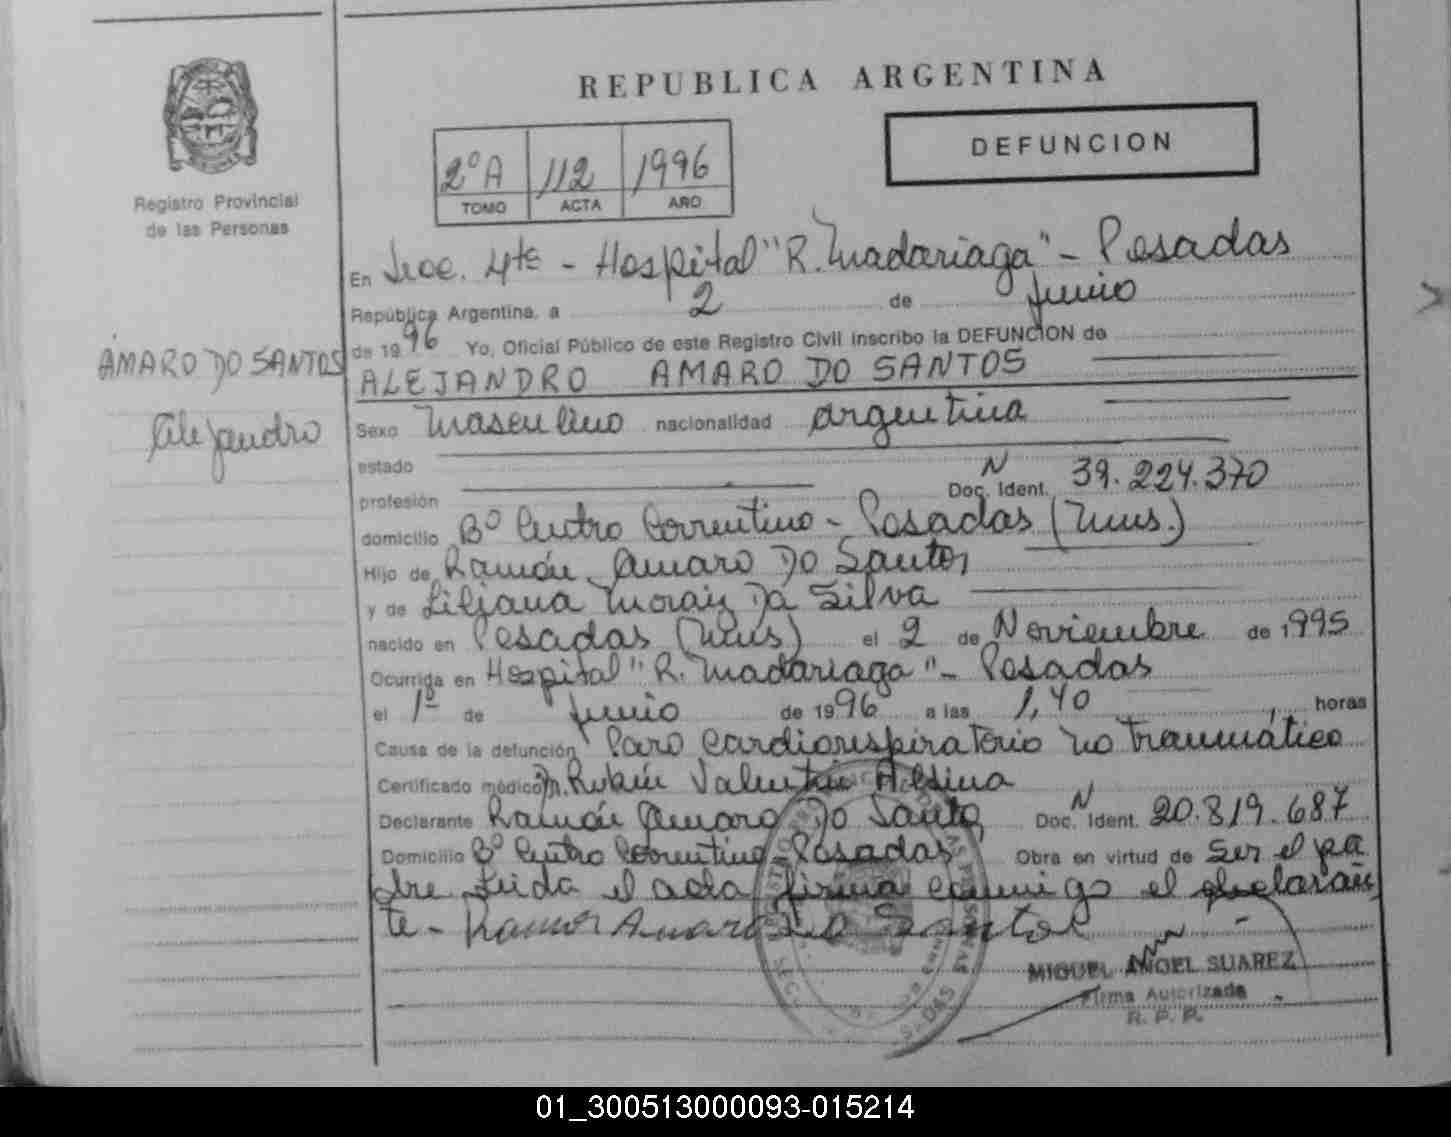 REPUBLICA ARGENTINA
DEFUNCION
2º A 112 1996
TOMO ACTA AÑO
Registro Provincial
de las Personas
En Secc. 4ta - Hospital "R. Madariaga" - Posadas
República Argentina, a 2 de Junio
de 1996 Yo, Oficial Público de este Registro Civil inscribo la DEFUNCION de
AMARO DO SANTOS
Alejandro
ALEJANDRO AMARO DO SANTOS
Sexo Masculino nacionalidad argentina
estado
profesión Doc. Ident. N 39.224.370
domicilio Bº Centro Correntino - Posadas (Mnes.)
Hijo de Ramón Amaro Do Santos
y de Liliana Moraiz Da Silva
nacido en Posadas (Mnes) el 2 de Noviembre de 1995
Ocurrida en Hospital "R. Madariaga" - Posadas
el 1º de Junio de 1996 a las 1,40 horas
Causa de la defunción Paro Cardiorespiratorio no traumático
Certificado médico Dr. Rubén Valentín Alsina
Declarante Ramón Amaro Do Santos Doc. Ident. N 20.819.687
Domicilio Bº Centro Correntino - Posadas Obra en virtud de Ser el pa
dre Leida el acta firma conmigo el declaran
te - Ramon Amaro Do Santos
MIGUEL ANGEL SUAREZ
Firma Autorizada
R. P. P.
01_300513000093-015214